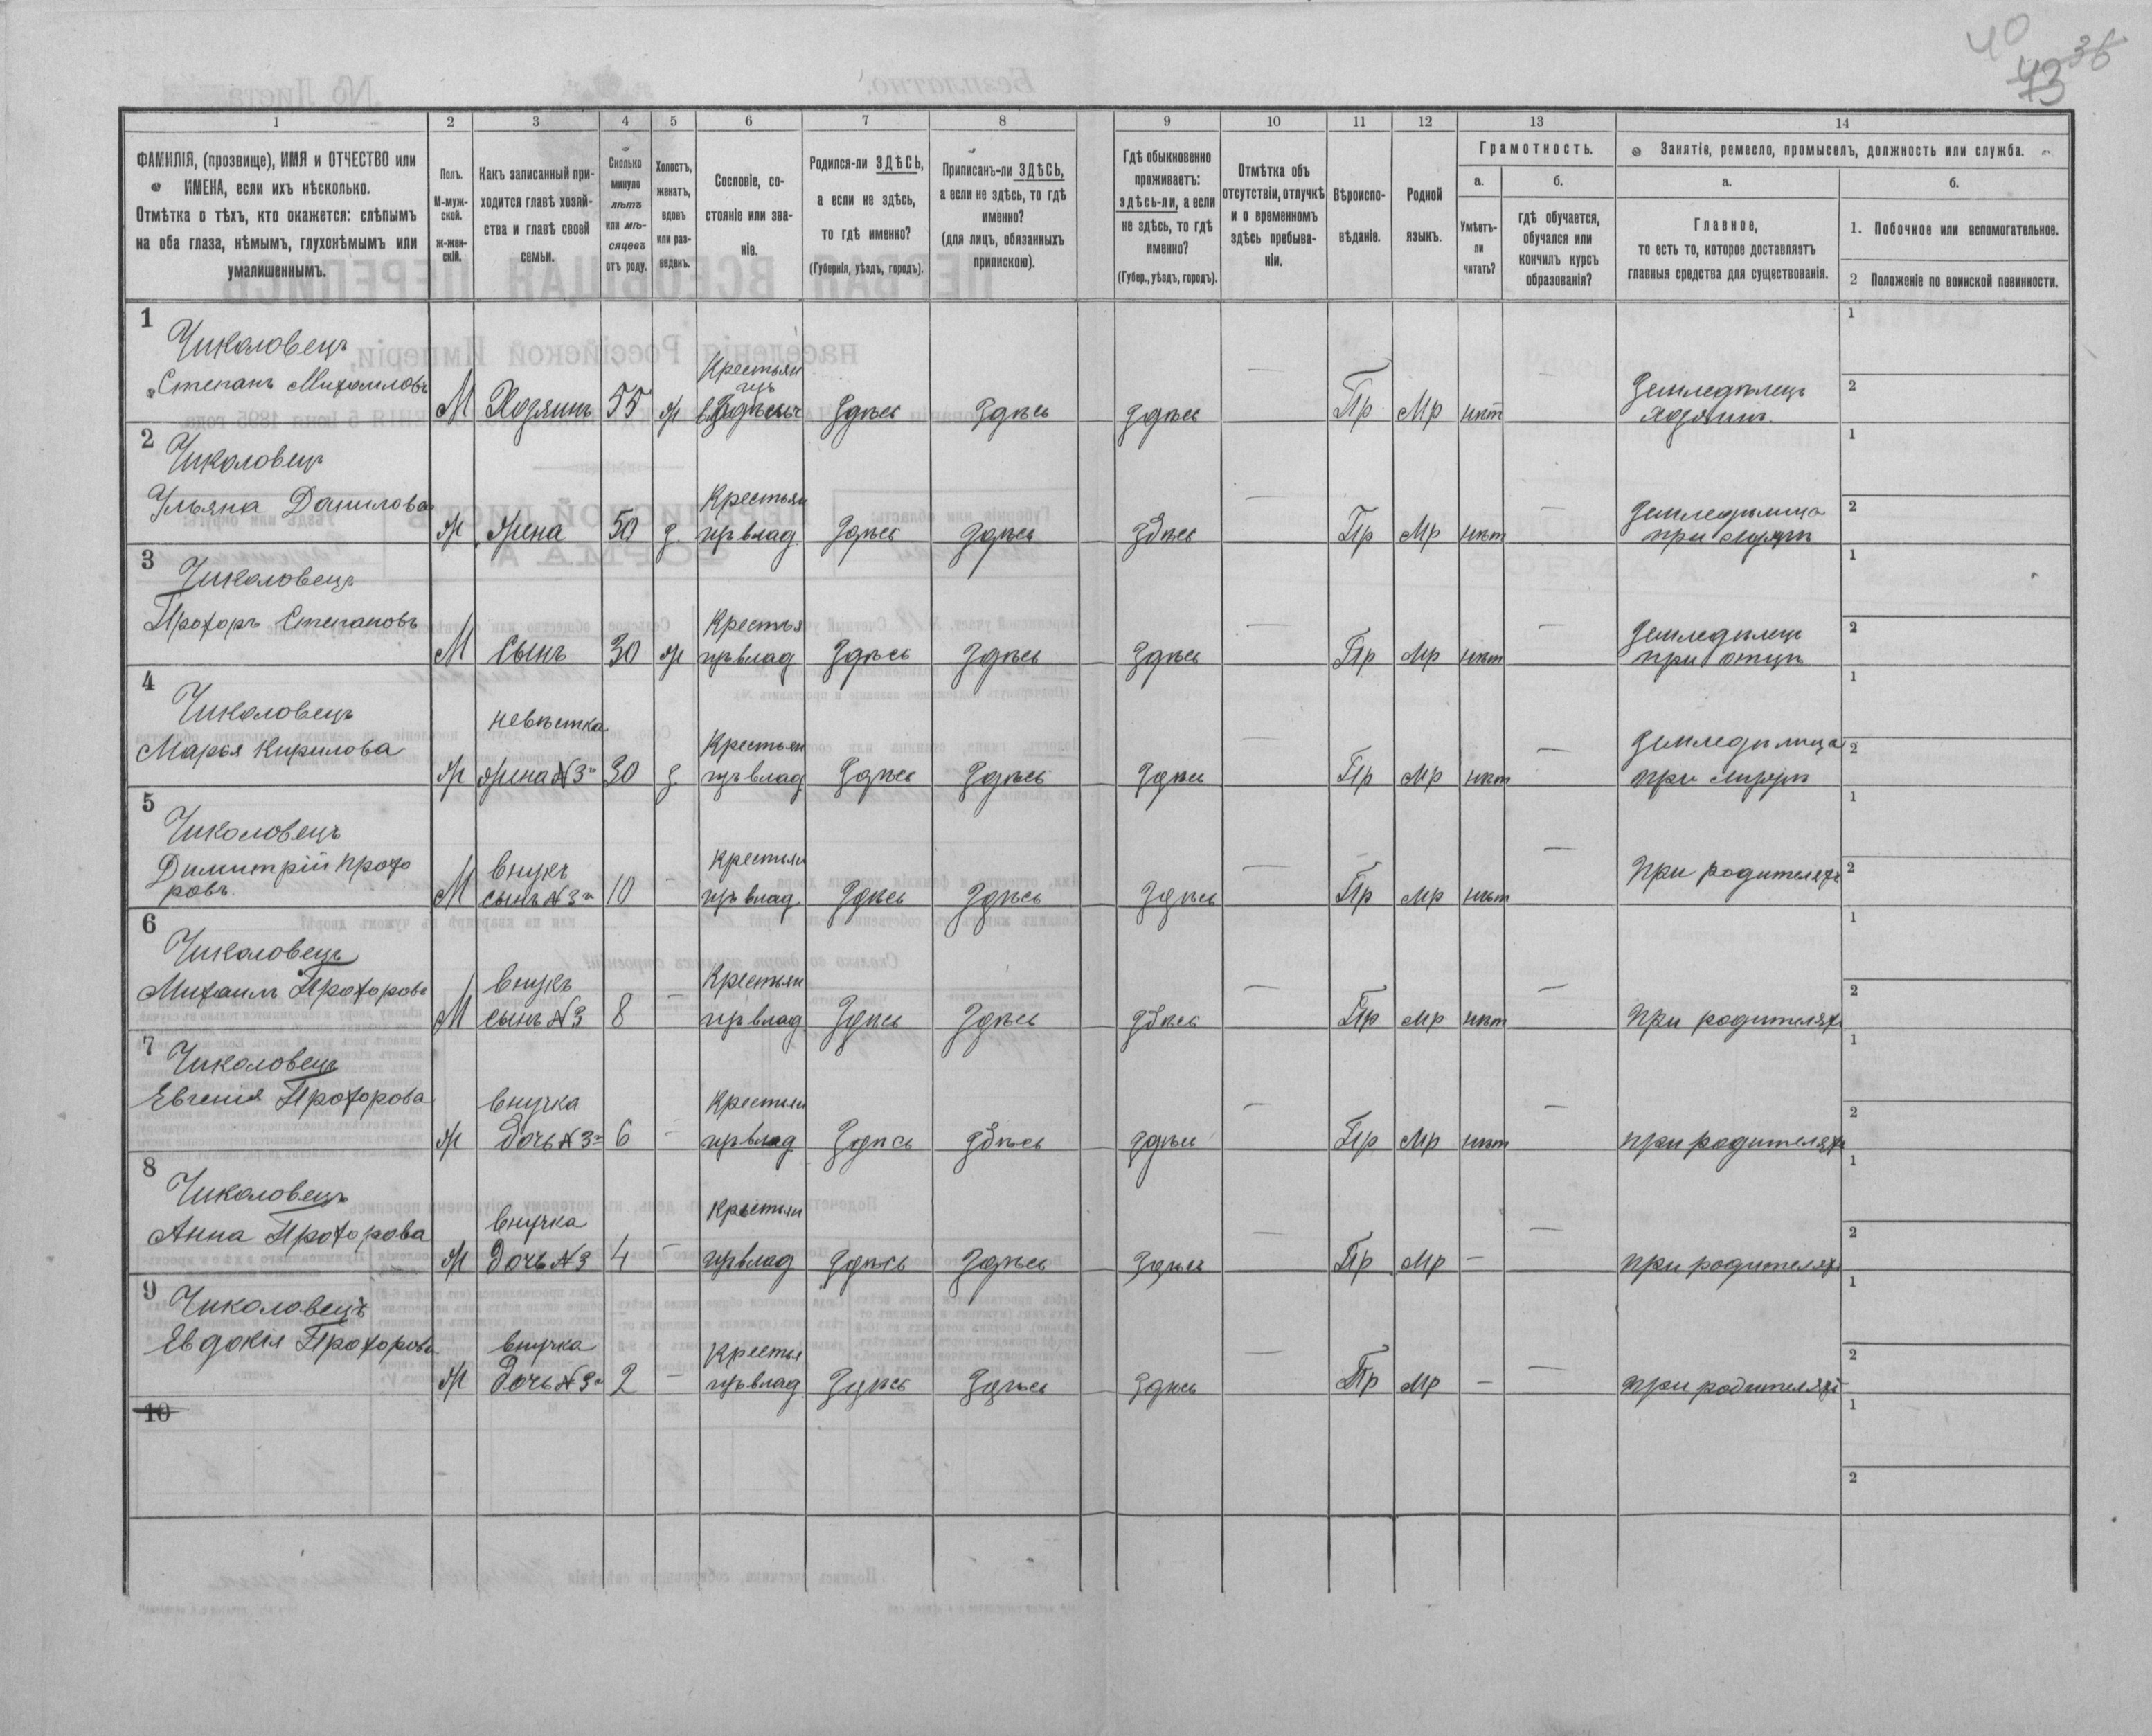 40
43 36
1 2 3 4 5 6 7 8 9 10 11 12 13 14
ФАМИЛІЯ, (прозвище), ИМЯ и ОТЧЕСТВО или
ИМЕНА, если ихъ нѣсколько.
Отмѣтка о тѣхъ, кто окажется: слѣпымъ
на оба глаза, нѣмымъ, глухонѣмымъ или
умалишеннымъ.
Полъ.
М-муж-
ской.
Ж-жен-
скій.
Какъ записанный при-
ходится главѣ хозяй-
ства и главѣ своей
семьи.
Сколько
минуло
лѣтъ
или мѣ-
сяцевъ
отъ роду.
Холостъ,
женатъ,
вдовъ
или раз-
веденъ.
Сословіе, со-
стояніе или зва-
ніе.
Родился-ли ЗДѢСЬ,
а если не здѣсь,
то гдѣ именно?
(Губернія, уѣздъ, городъ).
Приписанъ-ли ЗДѢСЬ,
а если не здѣсь, то гдѣ
именно?
(для лицъ, обязанныхъ
припискою).
Гдѣ обыкновенно
проживаетъ:
здѣсь-ли, а если
не здѣсь, то гдѣ
именно?
(Губер., уѣздъ, городъ).
Отмѣтка объ
отсутствіи, отлучкѣ
и о временномъ
здѣсь пребыва-
ніи.
Вѣроиспо-
вѣданіе.
Родной
языкъ.
Грамотность.
а.
Умѣетъ-
ли
читать?
б.
гдѣ обучается,
обучался или
кончилъ курсъ
образованія?
Занятіе, ремесло, промыселъ, должность или служба.
а.
Главное,
то есть то, которое доставляетъ
главныя средства для существованія.
б.
1. Побочное или вспомогательное.
2 Положеніе по воинской повинности.
1
Чиколовецъ Крестьян
Степанъ Михаиловъ М Хозяинъ 55 ж Здѣсь Здѣсь Здѣсь — Пр Мр нѣт — Земледѣлецъ
хозяинъ
1
2
2
Чиколовец Крестьян
Ульяна Данилова ж жена 50 з. цъ влад Здѣсь Здѣсь здѣсь — Пр Мр нѣт — Земледѣлица
при мужѣ
1
2
3
Чиколовецъ Крестья
Прохоръ Степановъ М Сынъ 30 ж цъ влад Здѣсь Здѣсь Здѣсь — Пр Мр нѣт — Земледѣлецъ
при отцѣ
1
2
4
Чиколовецъ невѣстка Крестьян
Марья Кирилова ж жена №3го 30 з. цъ влад Здѣсь Здѣсь Здѣсь Пр Мр нѣт — Земледѣлица
при мужѣ
1
2
5
Чиколовецъ внукъ Крестьян
Димитрій Прохо
ровъ М сынъ №3го 10 — цъ влад Здѣсь Здѣсь Здѣсь — Пр Мр нѣт — При родителях
1
2
6
Чиколовецъ внукъ Крестьян
Михаилъ Прохоровъ М сынъ №3 8 — цъ влад Здѣсь Здѣсь здѣсь — Пр Мр нѣт — При родителях
1
2
7
Чиколовецъ внучка Крестьян
Евгенія Прохорова ж дочь №3го 6 — цъ влад Здѣсь здѣсь здѣсь — Пр Мр нѣт — при родителях
1
2
8
Чиколовецъ внучка Крестьян
Анна Прохорова ж дочь №3 4 — цъ влад Здѣсь Здѣсь Здѣсь — Пр Мр — — при родителях
1
2
9
Чиколовецъ внучка Крестья
Евдокія Прохорова ж дочь №3го 2 — цъ влад Здѣсь Здѣсь Здѣсь — Пр Мр — — при родителях
1
2
10
1
2